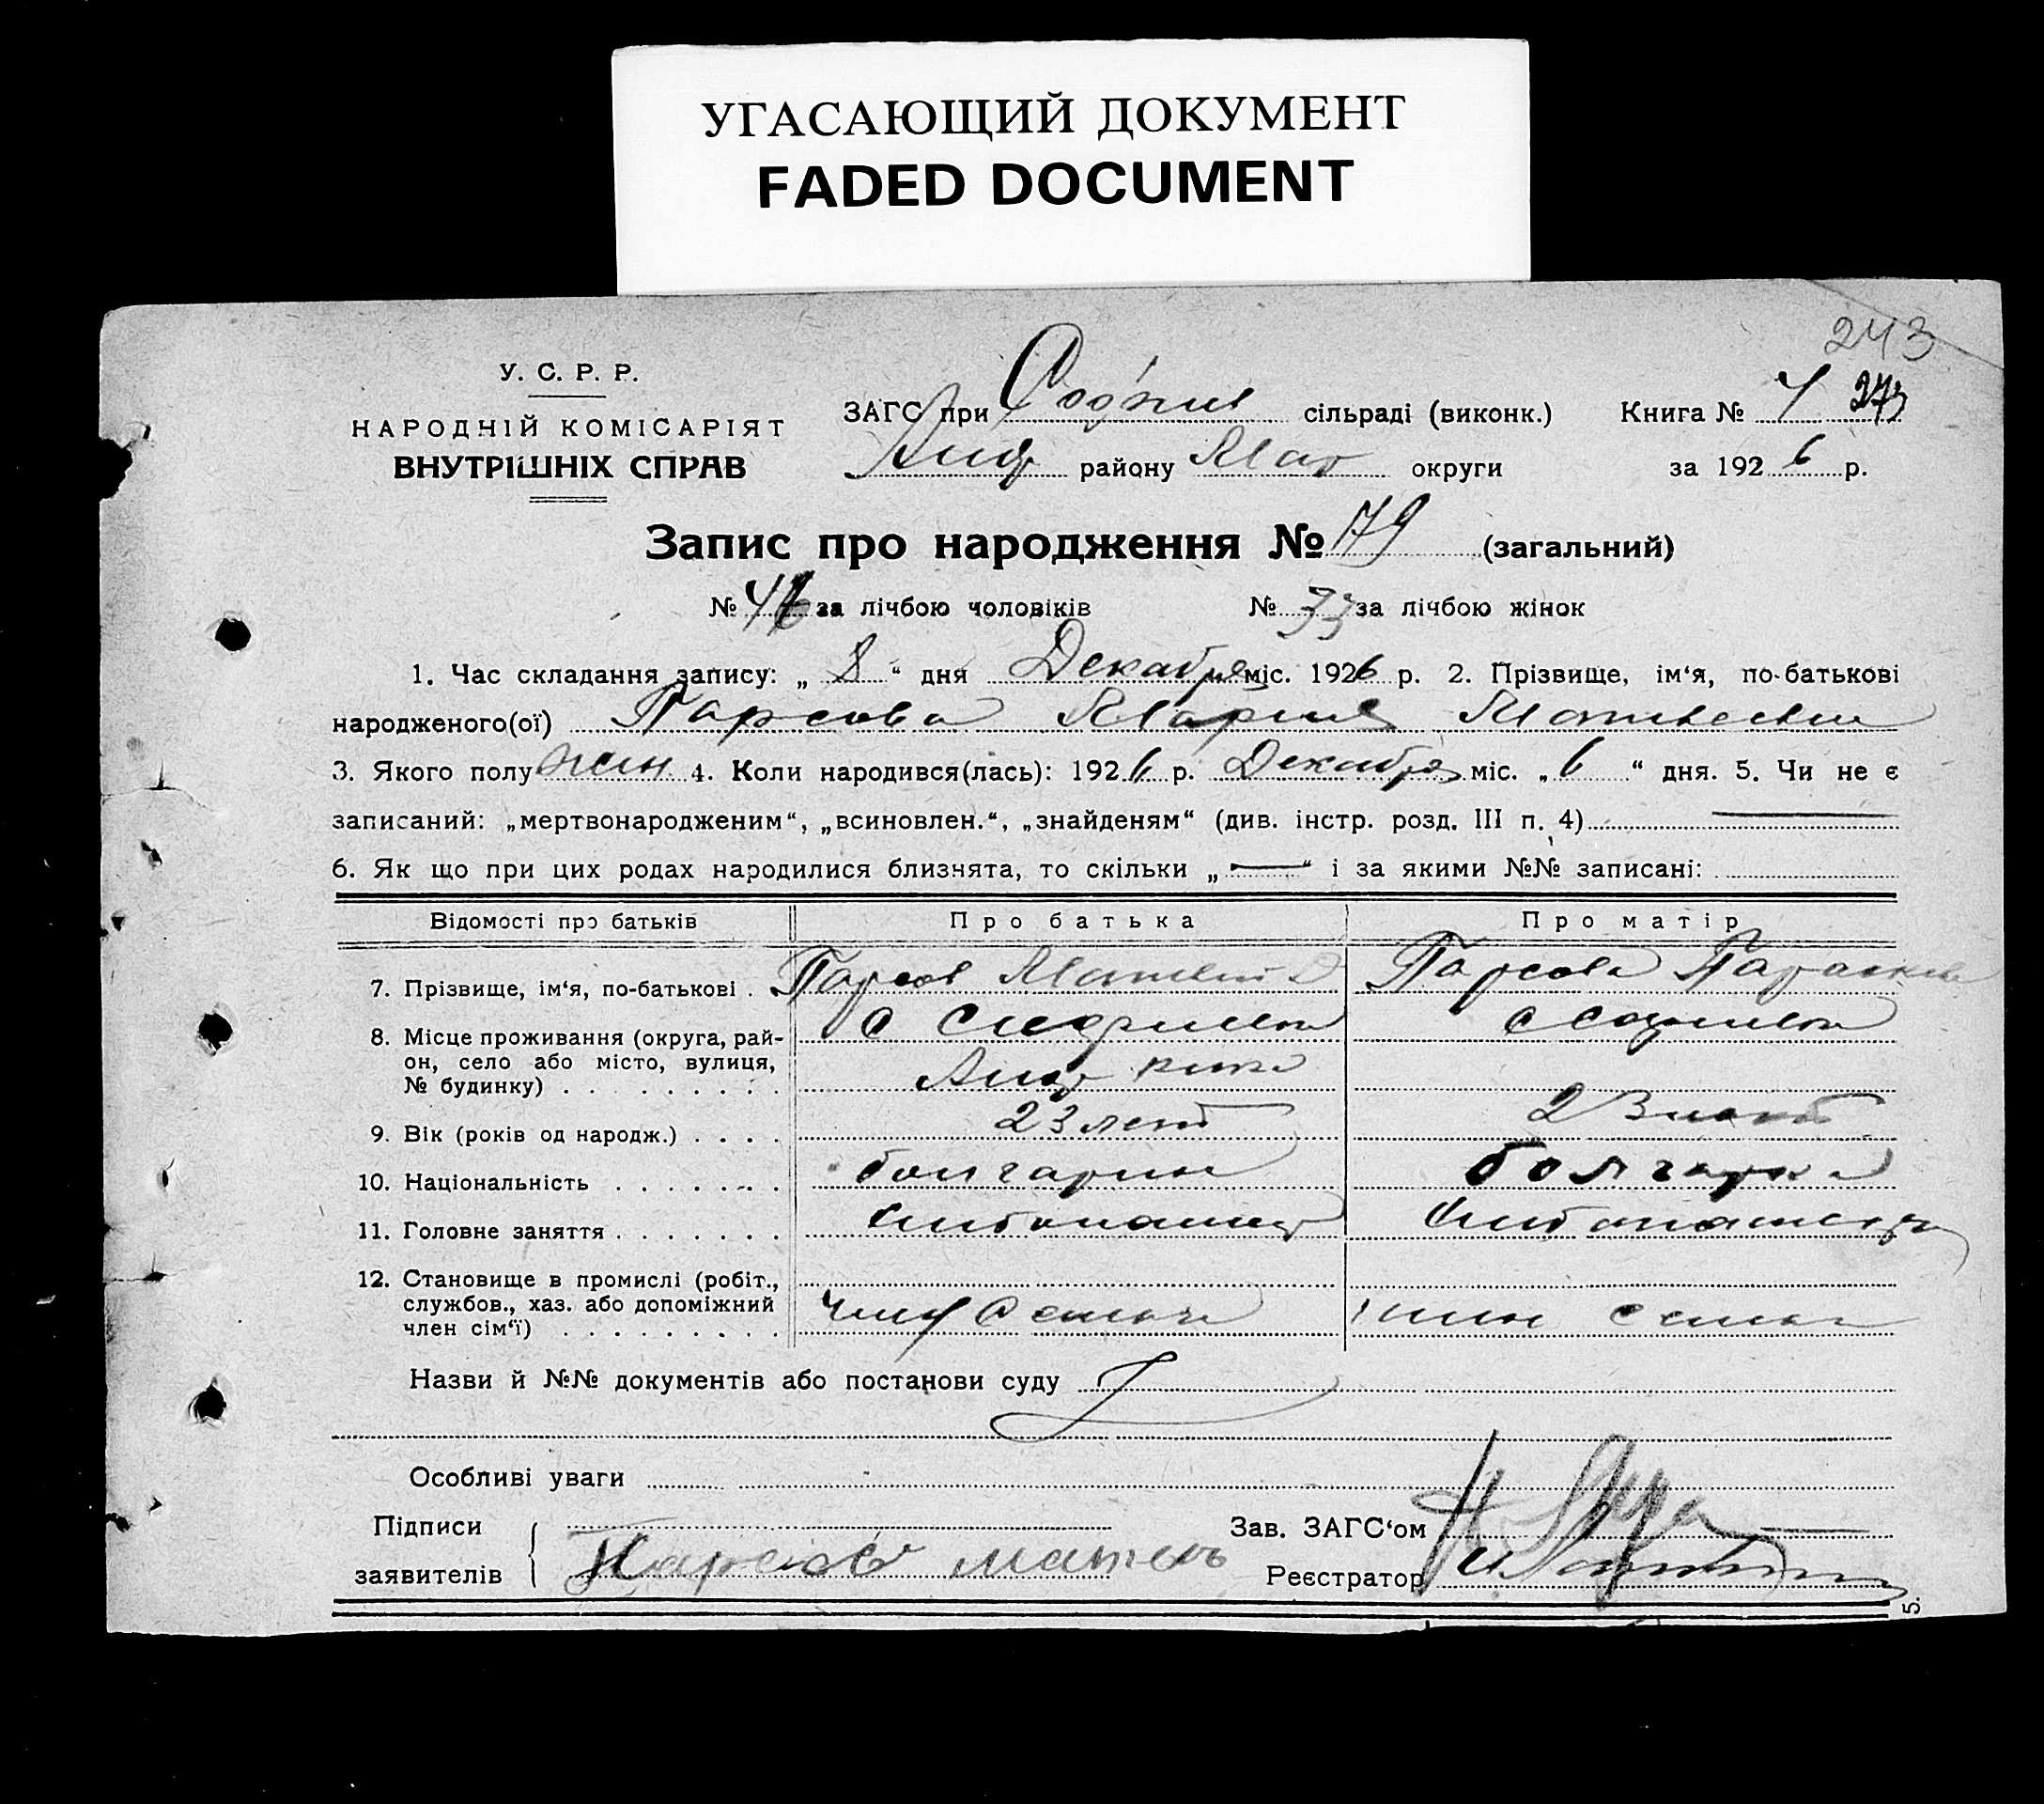 УГАСАЮЩИЙ ДОКУМЕНТ
FADED DOCUMENT
243
У. С. Р. Р.
НАРОДНІЙ КОМІСАРІЯТ
ВНУТРІШНІХ СПРАВ
ЗАГС при сільраді (виконк.) Книга № 273
району округи за 1926 р.
Запис про народження № 179 (загальний)
№ за лічбою чоловіків № 33 за лічбою жінок
1. Час складання запису: „ 8 “ дня Декабря міс. 1926 р. 2. Прізвище, ім‘я, по-батькові
народженого(ої) Парсова Мария Матвеевна
3. Якого полу жен 4. Коли народився(лась): 1926 р. Декабря міс. „ 6 “ дня. 5. Чи не є
записаний: „мертвонародженим“, „всиновлен.“, „знайденям“ (див. інстр. розд. III п. 4)
6. Як що при цих родах народилися близнята, то скільки „ — “ і за якими №№ записані:
Відомості про батьків Про батька Про матір
7. Прізвище, ім‘я, по-батькові . Парсов Матвей Парсова Параскева
8. Місце проживання (округа, рай-
он, село або місто, вулиця,
№ будинку) . . . . . . . . .
9. Вік (років од народж.) . . . . 23 лет 23 лет
10. Національність . . . . . . . болгарин болгарка
11. Головне заняття . . . . . . . хлебопашец
12. Становище в промислі (робіт.,
службов., хаз. або допоміжний
член сім‘ї) . . . . . . . . . член семьи член семьи
Назви й №№ документів або постанови суду
Особливі уваги
Підписи
заявителів Парсов матвей
Зав. ЗАГС‘ом
Реєстратор
5.